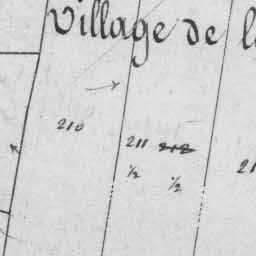 Village de
210
211 ~~212~~
½ ½